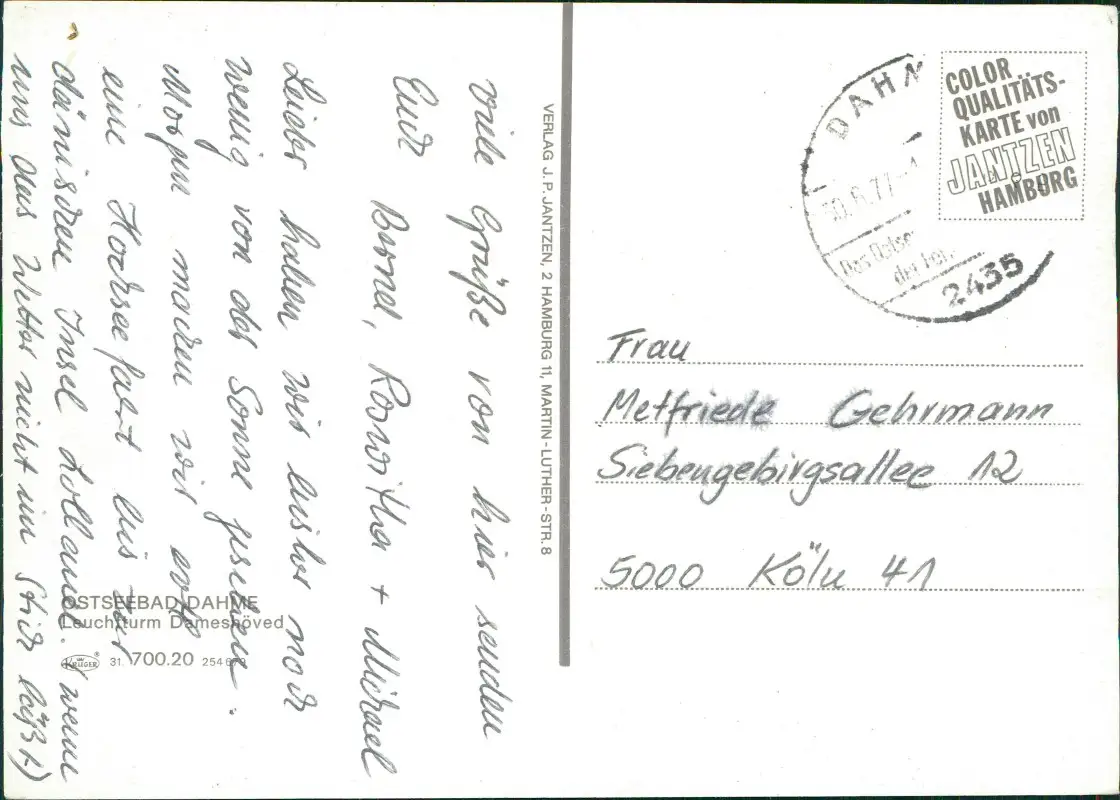 Viele Grüße von hier senden
Euch Bernd, Roswitha + Michael
Leider haben wir bisher noch
wenig von der Sonne gesehen.
Morgen machen wir evtl.
eine Hochseefahrt bis zur
dänischen Insel Lolland. (wenn
uns das Wetter nicht im Stich läßt.)
OSTSEEBAD DAHME
Leuchtturm Dameshöved
KRÜGER
31. 700.20 254 679
VERLAG J. P. JANTZEN, 2 HAMBURG 11, MARTIN-LUTHER-STR. 8
COLOR
QUALITÄTS-
KARTE von
JANTZEN
HAMBURG
DAHM
.6.77-
Das Ostsee
der
2435
Frau
Metfriede Gehrmann
Siebengebirgsallee 12
5000 Köln 41